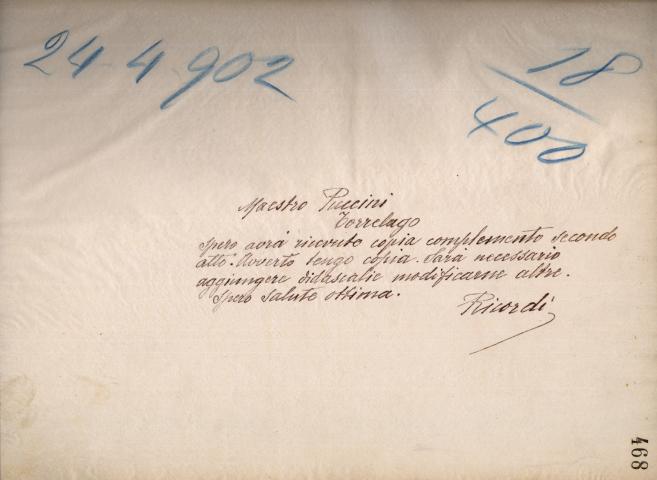 24 4 902
18
400
Maestro Puccini
Torrelago
Spero avrà ricevuto copia complemento secondo
atto. Avverto tengo copia. Sarà necessario
aggiungere didascalie modificarne altre.
Spero salute ottima.
Ricordi
468